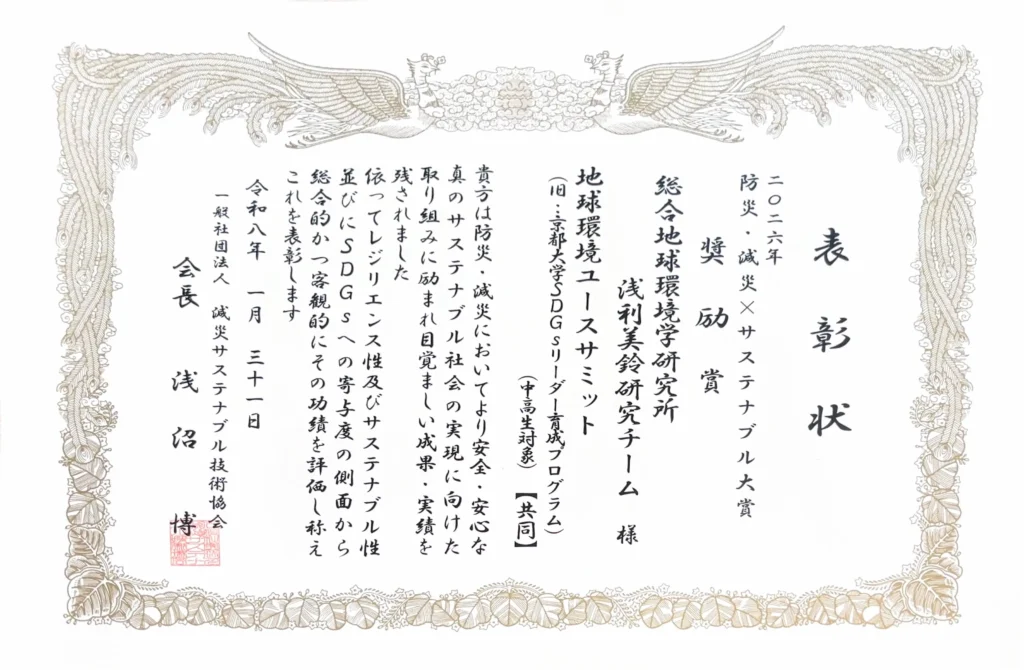 表彰状
二〇二六年
防災・減災×サステナブル大賞
奨励賞
総合地球環境学研究所
浅利美鈴研究チーム 様
地球環境ユースサミット
(旧:京都大学SDGsリーダー育成プログラム)
(中高生対象)【共同】
貴方は防災・減災においてより安全・安心な
真のサステナブル社会の実現に向けた
取り組みに励まれ目覚ましい成果・実績を
残されました
依ってレジリエンス性及びサステナブル性
並びにSDGsへの寄与度の側面から
総合的かつ客観的にその功績を評価し称え
これを表彰します
令和八年 一月 三十一日
一般社団法人 減災サステナブル技術協会
会長 浅沼 博